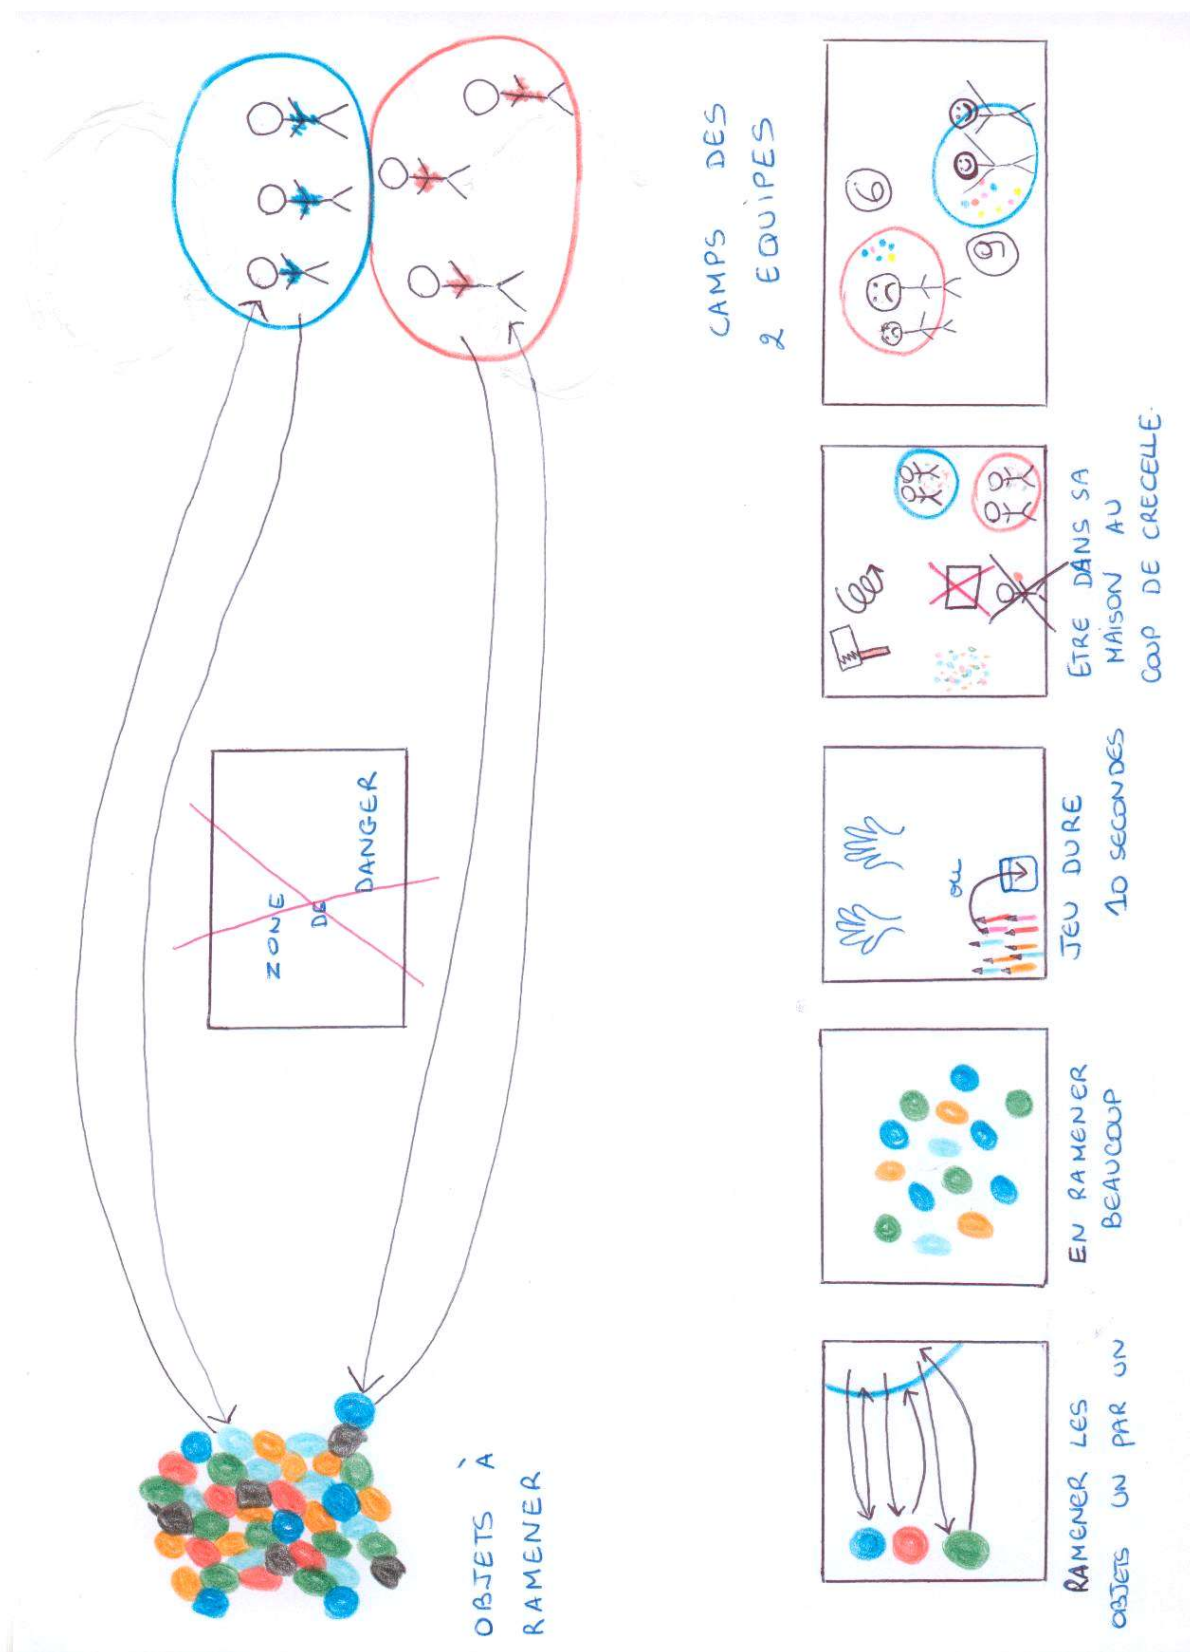 ZONE
DE
DANGER
OBJETS À
RAMENER
CAMPS DES
2 EQUIPES
6
9
ou
RAMENER LES
OBJETS UN PAR UN
EN RAMENER
BEAUCOUP
JEU DURE
10 SECONDES
ETRE DANS SA
MAISON AU
COUP DE CRECELLE.